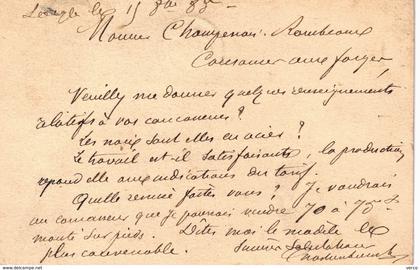 le 15 8bre
Monsieur Champenois-Rambeaux
Cousances aux forges
Veuillez me donner quelques renseignements
relatifs à vos concasseurs ?
Les noix sont elles en acier ?
Le travail est il satisfaisant, la production
répond elle aux indications du tarif.
Quelle remise faites vous ? Je voudrais
un concasseur que je pourrais vendre 70 à 75
monté sur pieds. Dites moi le modèle le
plus convenable.
Salutations